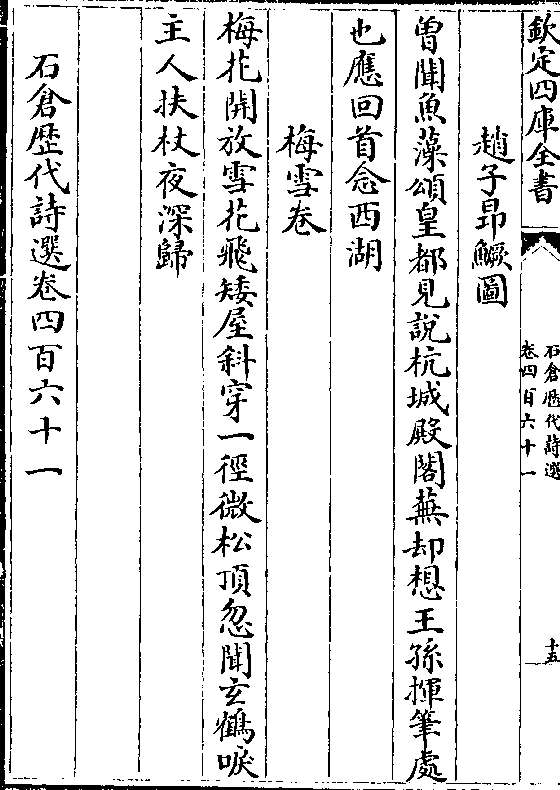 欽定四庫全書
石倉歴代詩選
卷四百六十一
十五
趙子昂鱖圖
曽聞魚藻頌皇都見說杭城殿閣蕪却想王孫揮筆處
也應回首念西湖
梅雪卷
梅花開放雪花飛矮屋斜穿一徑微松頂忽聞玄鶴唳
主人扶杖夜深歸
石倉歴代詩選卷四百六十一